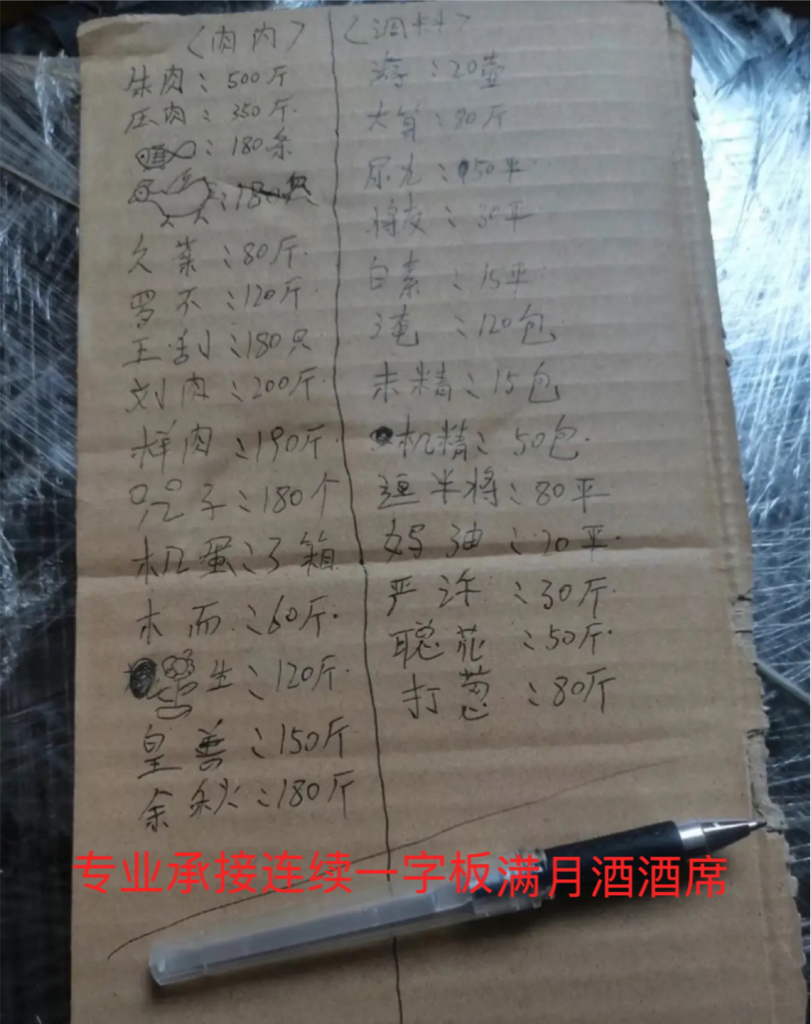 (肉肉)
朱肉:500斤
压肉:350斤.
:180条
:180只
久菜:80斤.
罗不:120斤.
王刮:180只
刘肉:200斤.
样肉:190斤.
子:180个
机蛋:3箱
木而:60斤.
生:120斤.
皇善:150斤
余秋:180斤
(调料)
游:20壶
大算:80斤
尿九:150平
将友:30平
白素:15平
:120包
未精:15包
机精:50包.
逗半将:80平.
好油:20平.
严许:30斤.
聪花:50斤.
打葱:80斤
专业承接连续一字板满月酒酒席